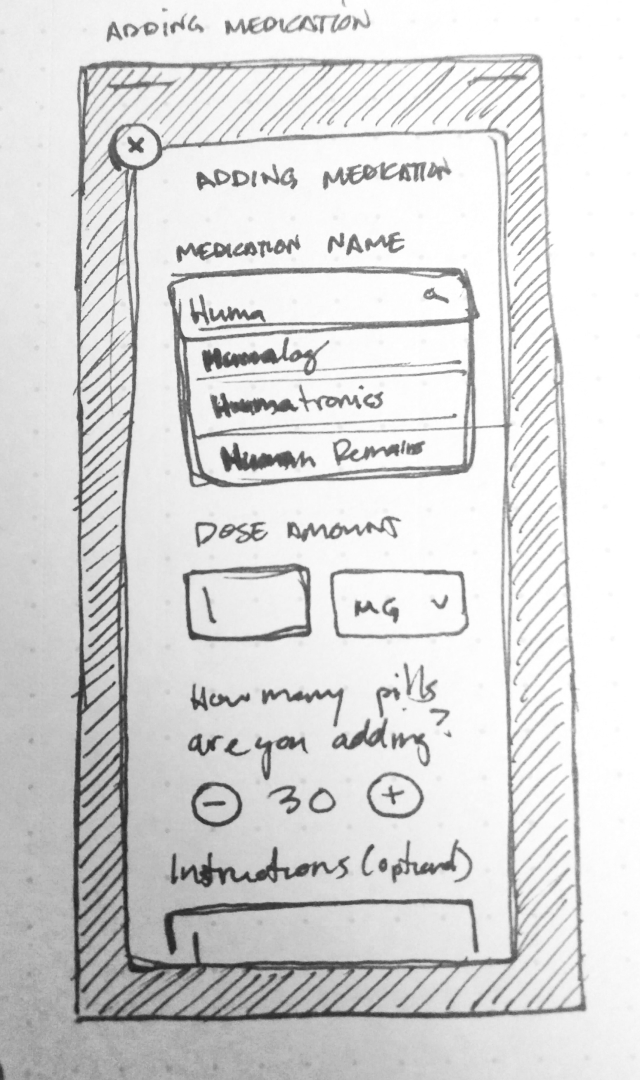 ADDING MEDICATION
ADDING MEDICATION
MEDICATION NAME
Huma
Humalog
Humatronics
Human Remains
DOSE AMOUNT
MG
How many pills
are you adding?
30
Instructions (optional)